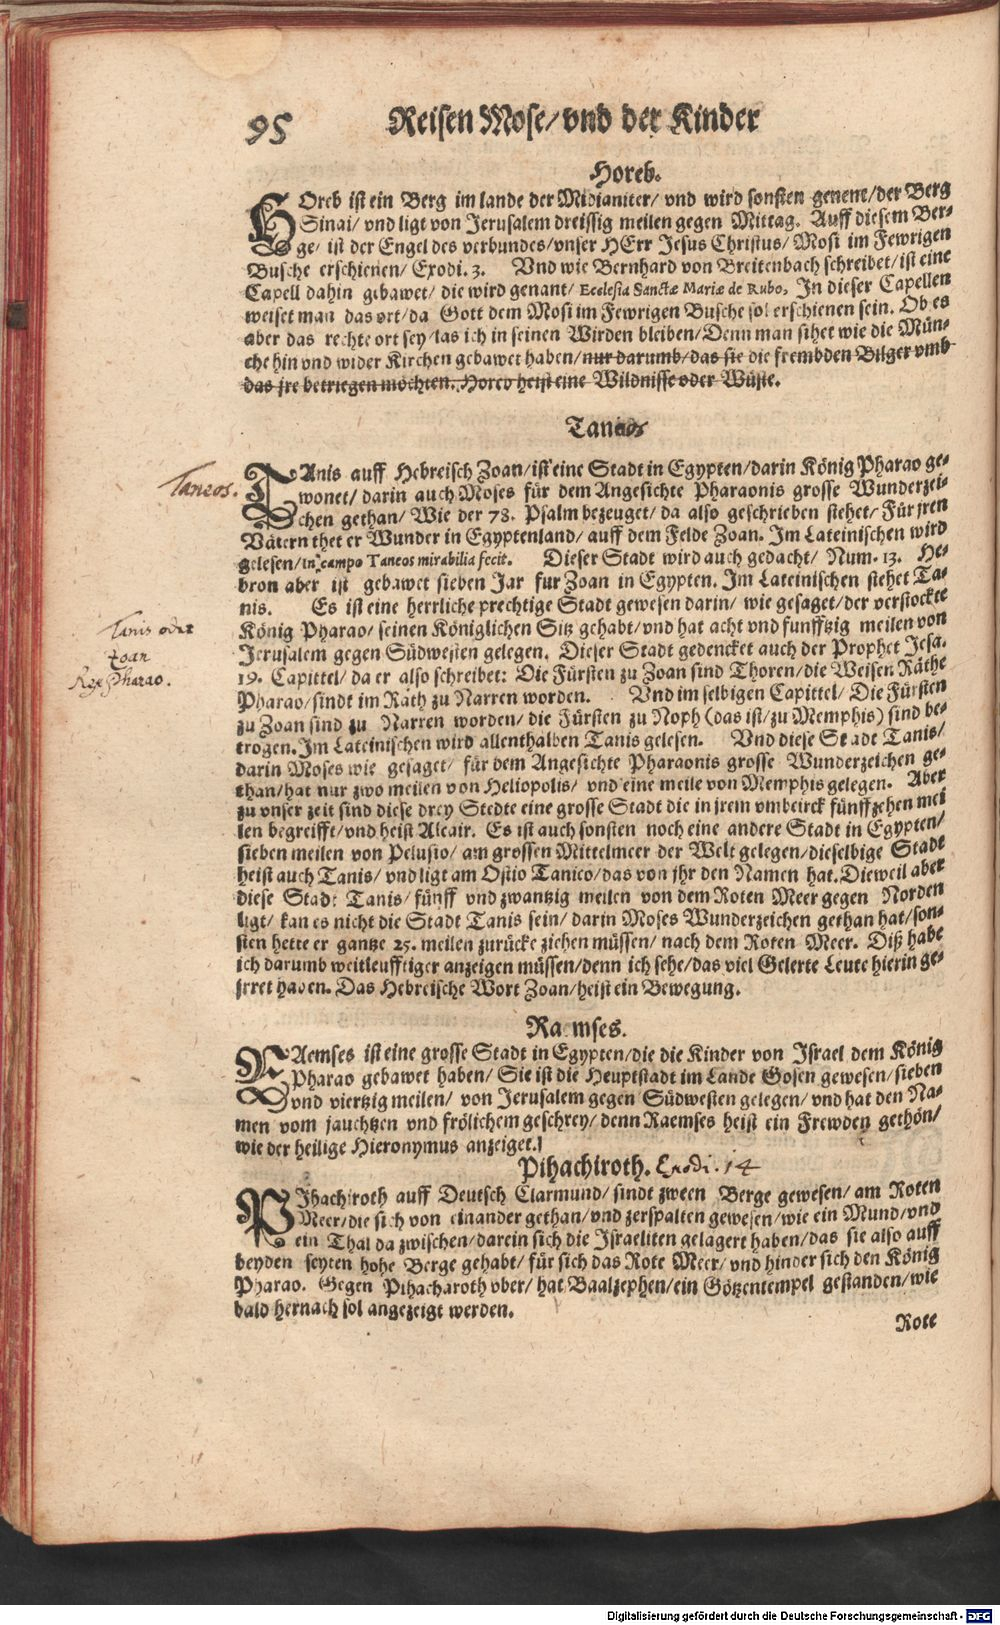 95
Reisen Mose/ vnd der Kinder
Horeb.
HOreb ist ein Berg im lande der Midianiter/ vnd wird sonsten genent/ der Berg
Sinai/ vnd ligt von Jerusalem dreissig meilen gegen Mittag. Auff diesem Ber-
ge/ ist der Engel des verbundes/ vnser HErr Jesus Christus/ Mosi im Fewrigen
Busche erschienen/ Exodi. 3. Vnd wie Bernhard von Breitenbach schreibet/ ist eine
Capell dahin gebawet/ die wird genant/ Ecclesia Sanctæ Mariæ de Rubo, In dieser Capellen
weiset man das ort/ da Gott dem Mosi im Fewrigen Busche sol erschienen sein. Ob es
aber das rechte ort sey/ las ich in seinen Wirden bleiben/ Denn man sihet wie die Mün-
che hin vnd wider Kirchen gebawet haben/ nur darumb/ das sie die frembden Bilger vmb
das jre betriegen möchten. Horeb heist eine Wildnisse oder Wüste.
Taneos
Taneos.
TAnis auff Hebreisch Zoan/ ist eine Stadt in Egypten/ darin König Pharao ge-
wonet/ darin auch Moses für dem Angesichte Pharaonis grosse Wunderzei-
chen gethan/ Wie der 78. Psalm bezeuget/ da also geschrieben stehet/ Für jren
Vätern thet er Wunder in Egyptenland/ auff dem Felde Zoan. Im Lateinischen wird
gelesen/ in campo Taneos mirabilia fecit. Dieser Stadt wird auch gedacht/ Num. 13. He-
bron aber ist gebawet sieben Jar fur Zoan in Egypten. Im Lateinischen stehet Ta-
nis. Es ist eine herrliche prechtige Stadt gewesen darin/ wie gesaget/ der verstockte
Tanis oder
Zoan
Rex Pharao.
König Pharao/ seinen Königlichen Sitz gehabt/ vnd hat acht vnd funfftzig meilen von
Jerusalem gegen Südwesten gelegen. Dieser Stadt gedencket auch der Prophet Jesa.
19. Capittel/ da er also schreibet: Die Fürsten zu Zoan sind Thoren/ die Weisen Räthe
Pharao/ sindt im Rath zu Narren worden. Vnd im selbigen Capittel/ Die Fürsten
zu Zoan sind zu Narren worden/ die Fürsten zu Noph (das ist/ zu Memphis) sind be-
trogen. Im Lateinischen wird allenthalben Tanis gelesen. Vnd diese Stadt Tanis/
darin Moses wie gesaget/ für dem Angesichte Pharaonis grosse Wunderzeichen ge-
than/ hat nur zwo meilen von Heliopolis/ vnd eine meile von Memphis gelegen. Aber
zu vnser zeit sind diese drey Stedte eine grosse Stadt die in jrem vmbeirck fünffzehen mei
len begreifft/ vnd heist Alcair. Es ist auch sonsten noch eine andere Stadt in Egypten/
sieben meilen von Pelusio/ am grossen Mittelmeer der Welt gelegen/ dieselbige Stadt
heist auch Tanis/ vnd ligt am Ostio Tanico/ das von jhr den Namen hat. Dieweil aber
diese Stadt Tanis/ fünff vnd zwantzig meilen von dem Roten Meer gegen Norden
ligt/ kan es nicht die Stadt Tanis sein/ darin Moses Wunderzeichen gethan hat/ son-
sten hette er gantze 25. meilen zurücke ziehen müssen/ nach dem Roten Meer. Diß habe
ich darumb weitleufftiger anzeigen müssen/ denn ich sehe/ das viel Gelerte Leute hierin ge-
jrret haben. Das Hebreische Wort Zoan/ heist ein Bewegung.
Raemses.
RAemses ist eine grosse Stadt in Egypten/ die die Kinder von Israel dem König
Pharao gebawet haben/ Sie ist die Heuptstadt im Lande Gosen gewesen/ sieben
vnd viertzig meilen/ von Jerusalem gegen Südwesten gelegen/ vnd hat den Na-
men vom jauchtzen vnd frölichem geschrey/ denn Raemses heist ein Frewden gethön/
wie der heilige Hieronymus anzeiget.
Pihachiroth. Exodi. 14
PIhachiroth auff Deutsch Clarmund/ sindt zween Berge gewesen/ am Roten
Meer/ die sich von einander gethan/ vnd zerspalten gewesen/ wie ein Mund/ vnd
ein Thal da zwischen/ darein sich die Israeliten gelagert haben/ das sie also auff
beyden seyten hohe Berge gehabt/ für sich das Rote Meer/ vnd hinder sich den König
Pharao. Gegen Pihacharoth vber/ hat Baalzephen/ ein Götzentempel gestanden/ wie
bald hernach sol angezeigt werden.
Rote
Digitalisierung gefördert durch die Deutsche Forschungsgemeinschaft - DFG